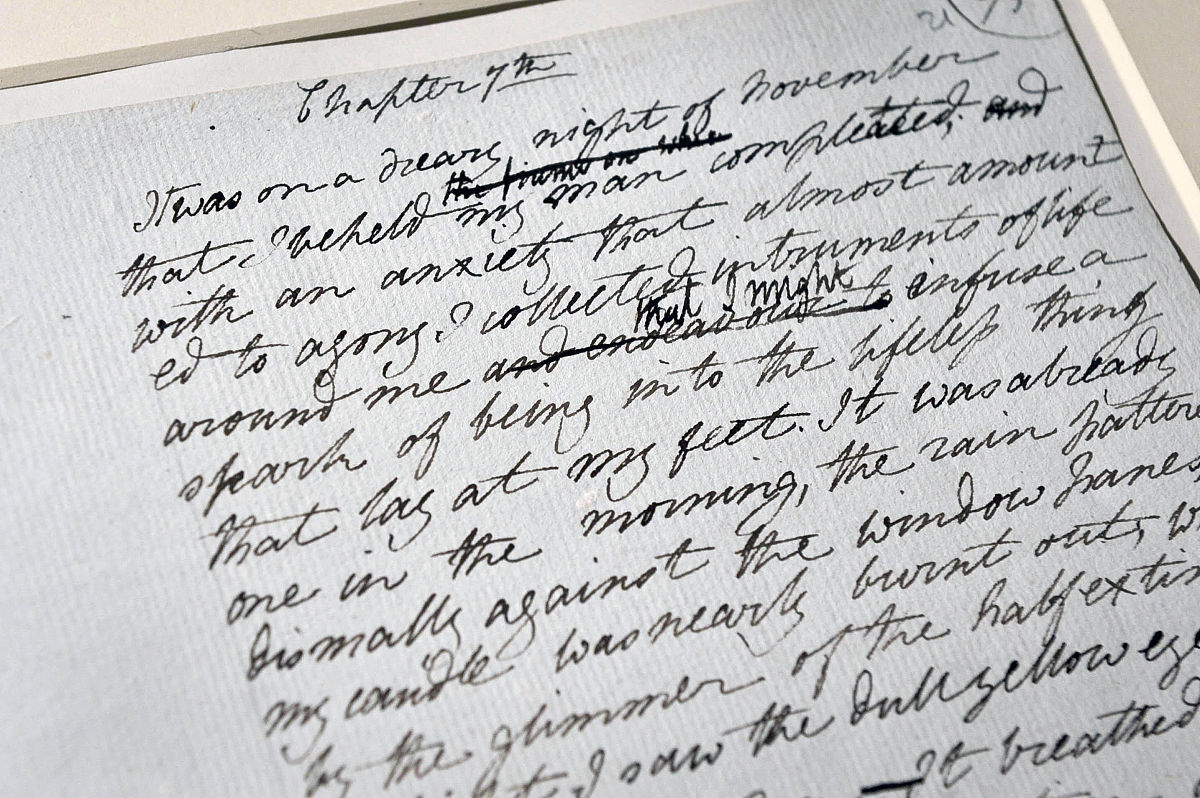 Chapter 7th
It was on a dreary night of November
that I beheld my man compleated; and
with an anxiety that almost amount
ed to agony, I collected intruments of life
around me and endeavour to that I might infuse a
spark of being into the lifeless thing
that lay at my feet. It was already
one in the morning, the rain patter
dismally against the window panes,
my candle was nearly burnt out, w
by the glimmer of the half extin
I saw the dull yellow eye
It breathed